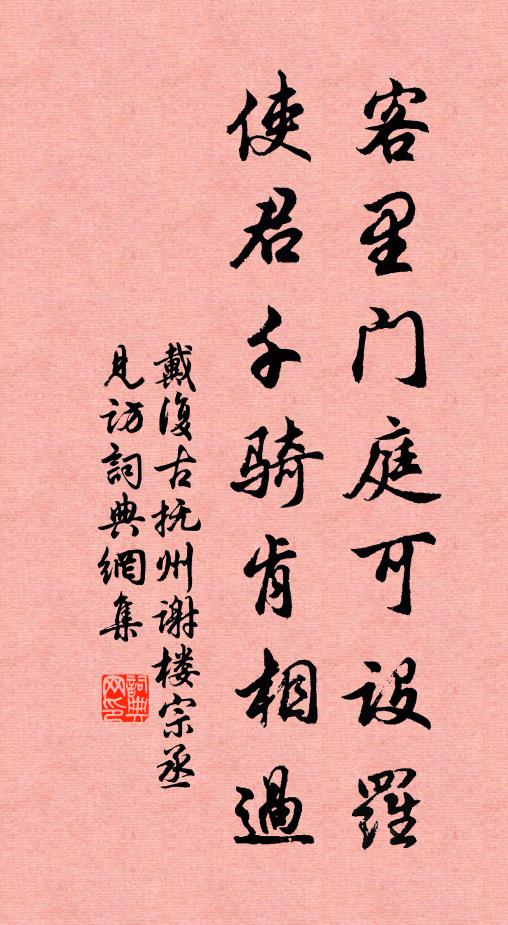 客里门庭可设罗
使君千骑肯相過
戴復古抚州谢楼宗丞
見访詞典網集
詞典网印